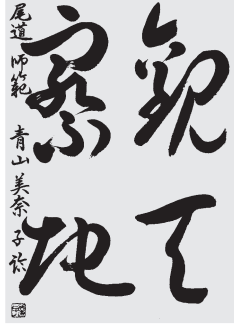 観天
察地
尾道 師範 青山 美奈子